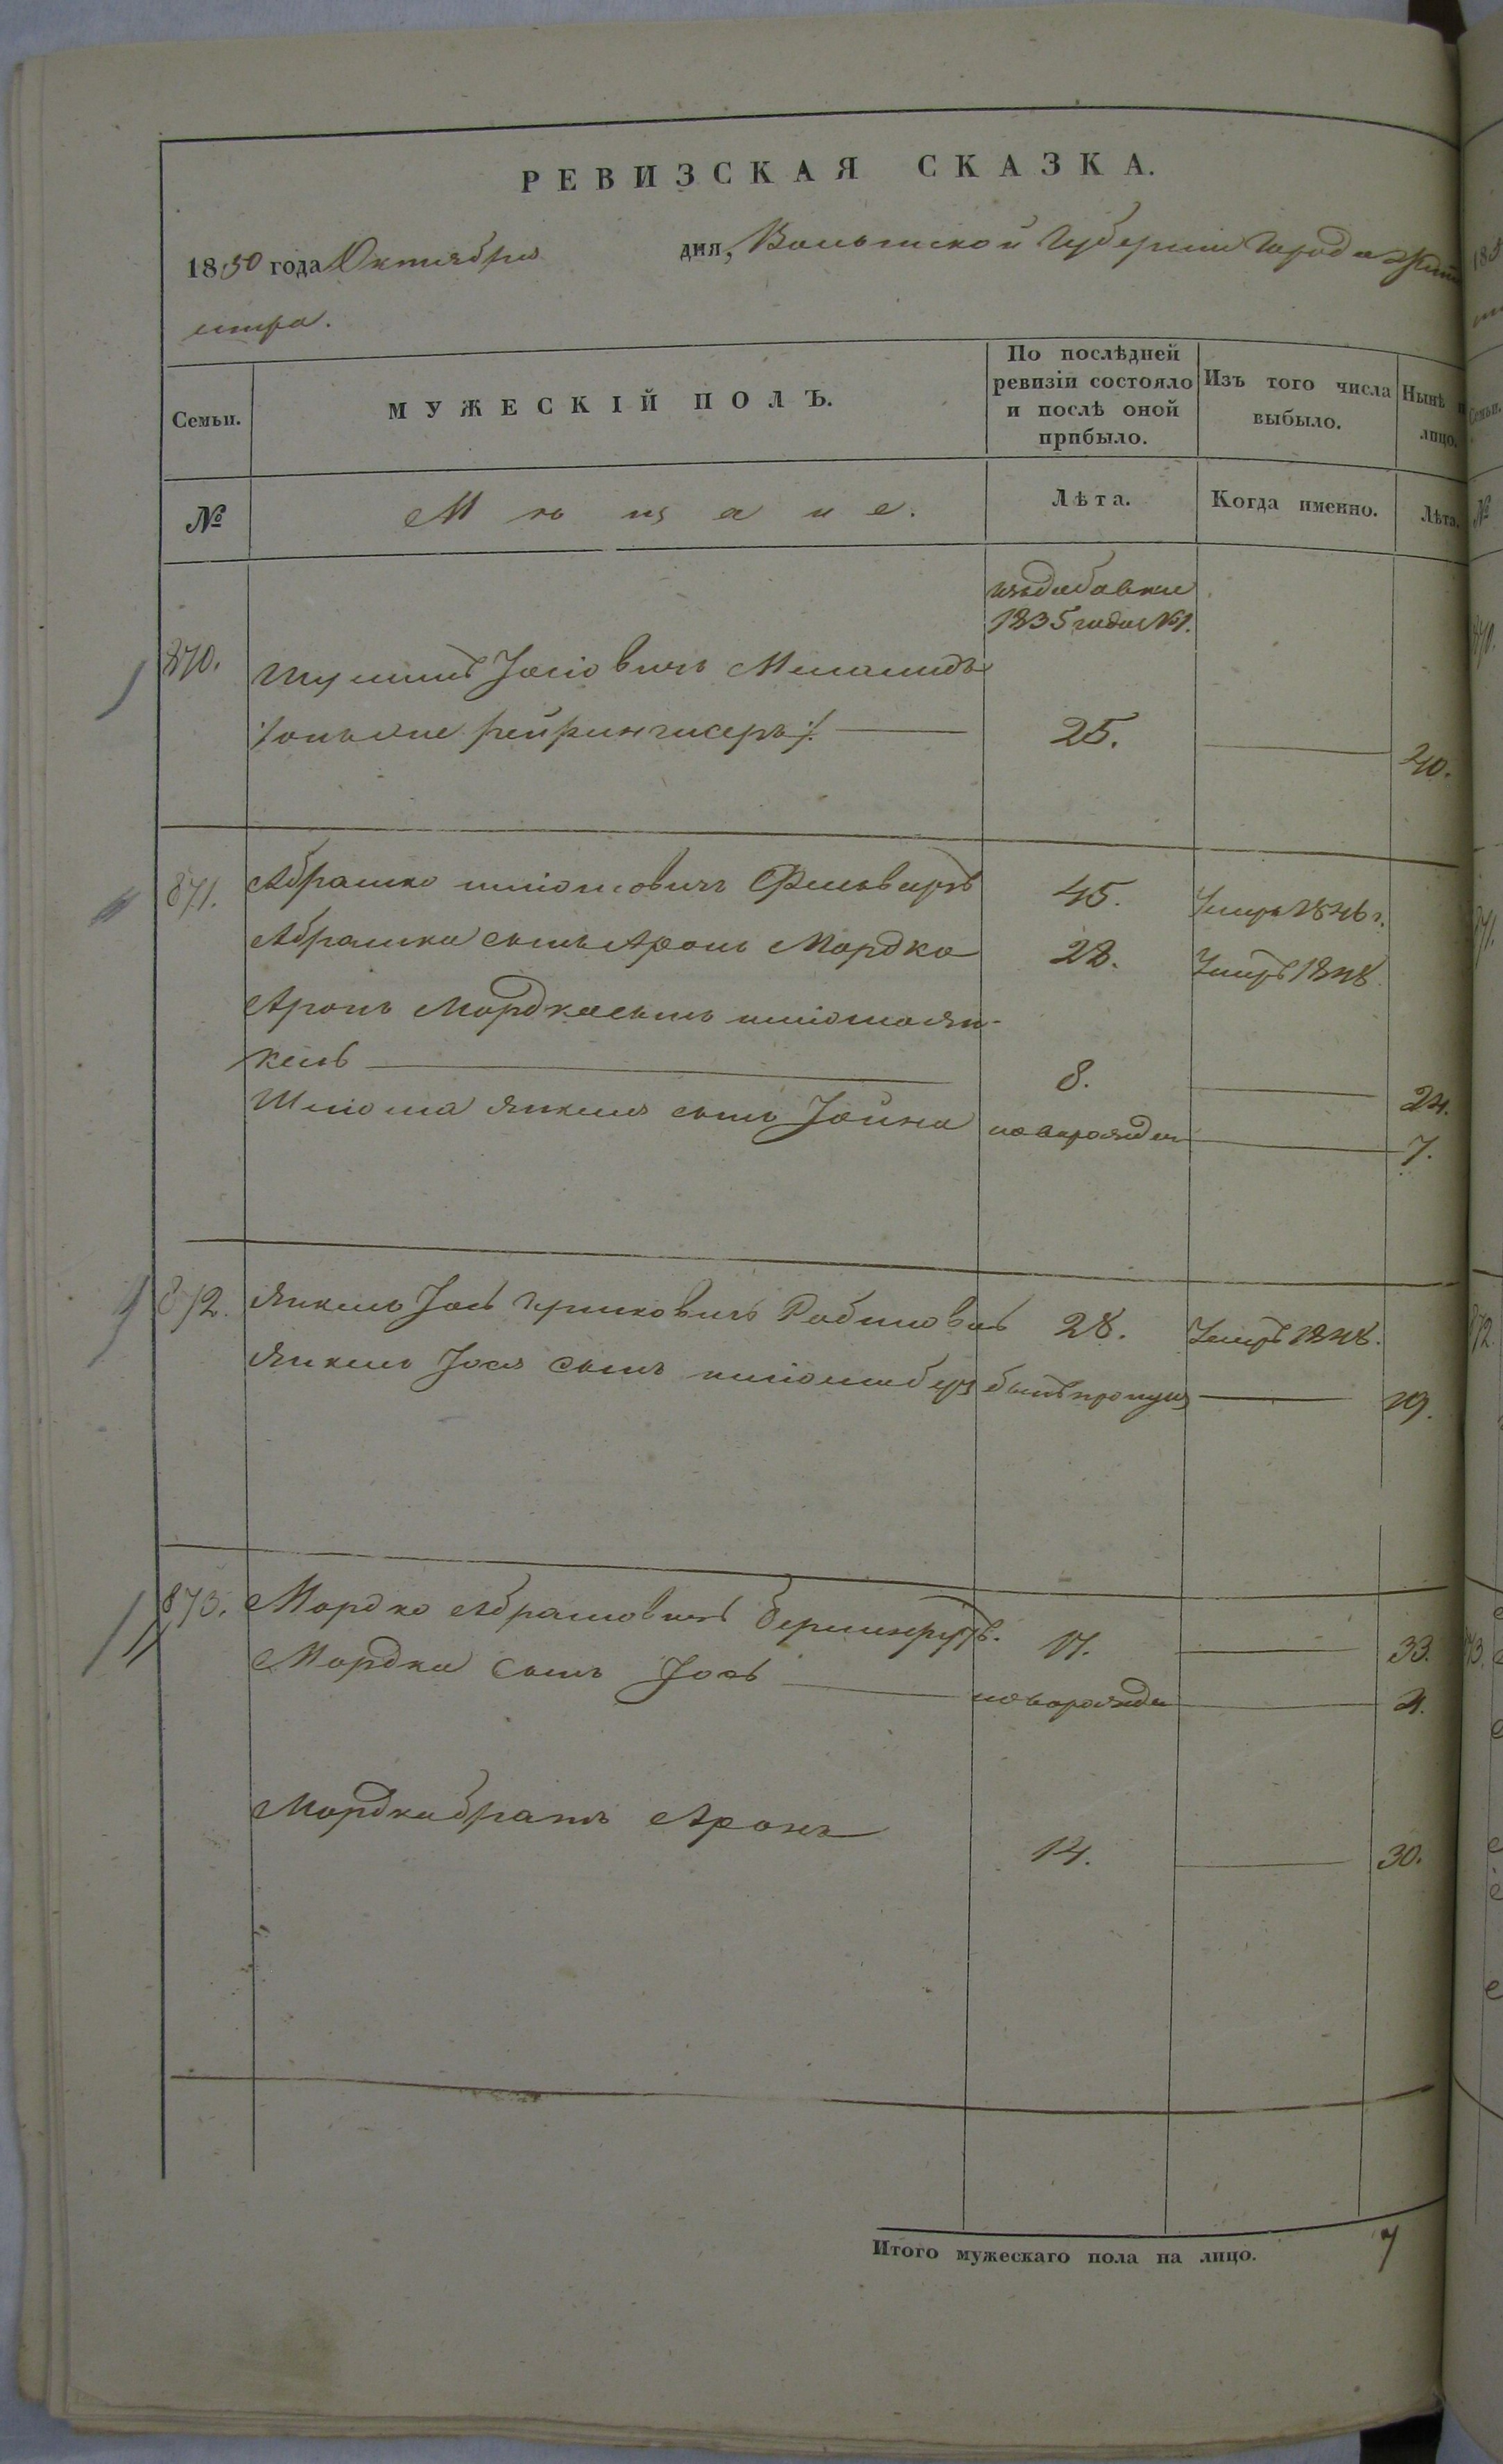 РЕВИЗСКАЯ СКАЗКА.
1850 года Октября дня, Волынской Губерніи Города Жито
мира.
Семьи.
МУЖЕСКІЙ ПОЛЪ.
По послѣдней ревизіи состояло и послѣ оной прибыло.
Изъ того числа выбыло.
Нынѣ на лицо.
№
Мѣщане.
Лѣта.
Когда именно.
Лѣта.
изъ добавки
1835 года №1.
870. Іосіовичъ Меламидъ
онъ же 25. 40.
871. Абрамко Шліомовичъ 45. Умеръ 1846 г.
Абрамка сынъ Аронъ Мордко 28. Умеръ 1848.
Аронъ Мордка сынъ Шліома Ян-
кель 8. 24.
Шліома Янкеля сынъ Іойна новорожден 7.
872. Янкель Іось Гершковичъ 28. Умеръ 1848.
Янкель Іося сынъ Шліома Бер былъ пропущ 19.
873. Мордко Абрамовичъ 17. 33.
Мордка сынъ Іось новорожде 4.
Мордка братъ Аронъ 14. 30.
Итого мужескаго пола на лицо. 7